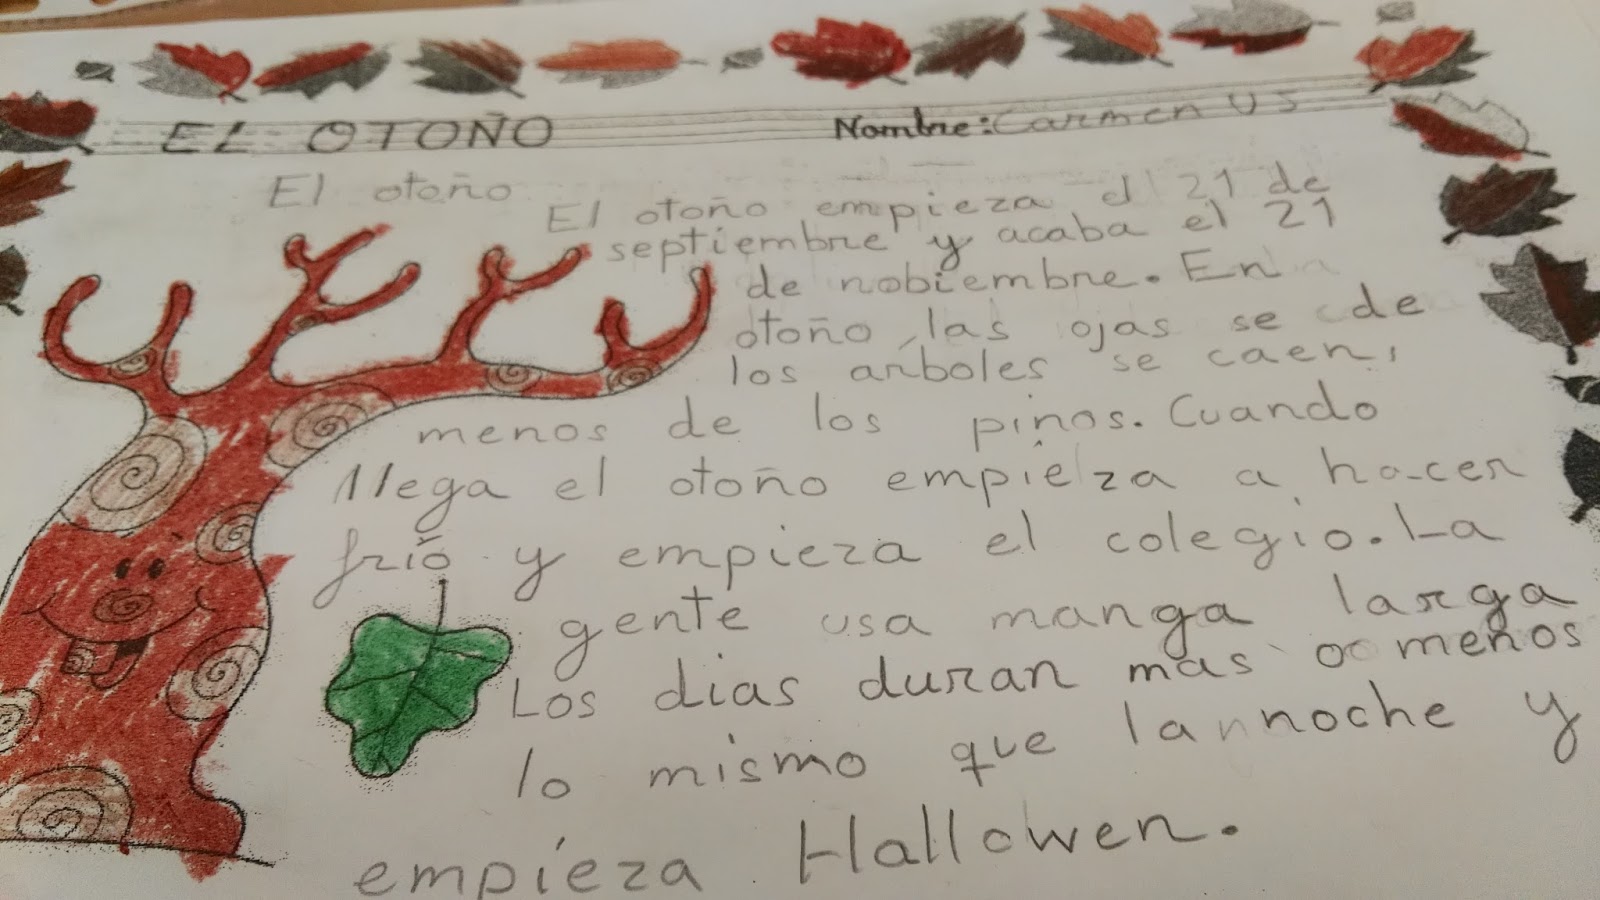 EL OTOÑO
Nombre: Carmen U S
El otoño
El otoño empieza el 21 de
septiembre y acaba el 21
de nobiembre. En
otoño, las ojas se de
los arboles se caen,
menos de los pinos. Cuando
llega el otoño empieza a hacer
frío y empieza el colegio. La
gente usa manga larga
Los dias duran mas o menos
lo mismo que la noche y
empieza Hallowen.